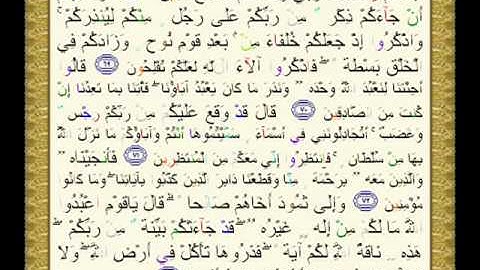 أَن جَآءَكُمْ ذِكْرٌ مِن رَبِّكُمْ عَلَى رَجُلٍ مِنكُمْ لِيُنذِرَكُمْ
وَاذْكُرُوا إِذْ جَعَلَكُمْ خُلَفَآءَ مِن بَعْدِ قَوْمِ نُوحٍ وَزَادَكُمْ فِي
الْخَلْقِ بَسْطَةً فَاذْكُرُوا آلَآءَ اللَّهِ لَعَلَّكُمْ تُفْلِحُونَ ٦٩ قَالُوا
أَجِئْتَنَا لِنَعْبُدَ اللَّهَ وَحْدَهُ وَنَذَرَ مَا كَانَ يَعْبُدُ آبَآؤُنَا فَأْتِنَا بِمَا تَعِدُنَآ إِن
كُنتَ مِنَ الصَّادِقِينَ ٧٠ قَالَ قَدْ وَقَعَ عَلَيْكُم مِن رَبِّكُمْ رِجْسٌ
وَغَضَبٌ أَتُجَادِلُونَنِي فِي أَسْمَآءٍ سَمَّيْتُمُوهَآ أَنتُمْ وَآبَآؤُكُم مَا نَزَّلَ اللَّهُ
بِهَا مِن سُلْطَانٍ فَانتَظِرُوا إِنِّي مَعَكُم مِنَ الْمُنتَظِرِينَ ٧١ فَأَنجَيْنَاهُ
وَالَّذِينَ مَعَهُ بِرَحْمَةٍ مِنَّا وَقَطَعْنَا دَابِرَ الَّذِينَ كَذَّبُوا بِآيَاتِنَا وَمَا كَانُوا
مُؤْمِنِينَ ٧٢ وَإِلَى ثَمُودَ أَخَاهُمْ صَالِحًا قَالَ يَاقَوْمِ اعْبُدُوا
اللَّهَ مَا لَكُم مِنْ إِلَهٍ غَيْرُهُ قَدْ جَآءَتْكُم بَيِّنَةٌ مِن رَبِّكُمْ
هَذِهِ نَاقَةُ اللَّهِ لَكُمْ آيَةً فَذَرُوهَا تَأْكُلْ فِي أَرْضِ اللَّهِ وَلَا